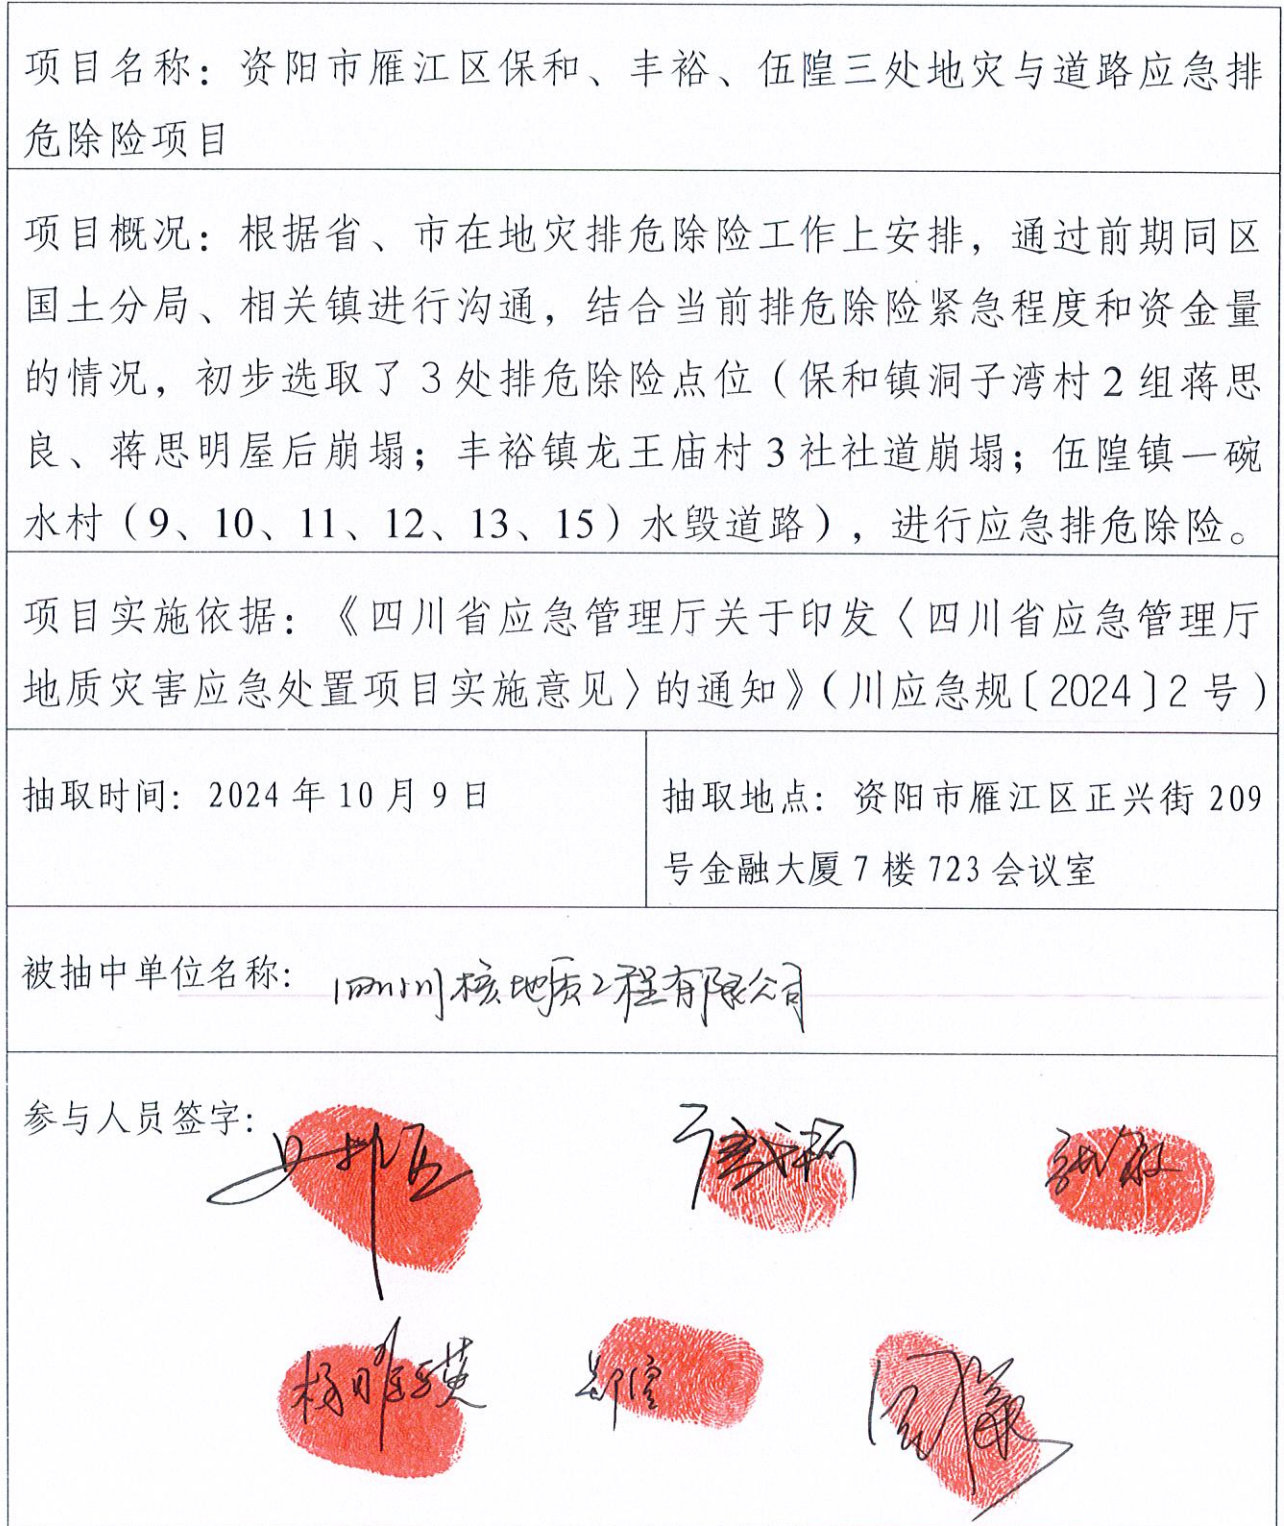 项目名称：资阳市雁江区保和、丰裕、伍隍三处地灾与道路应急排
危除险项目
项目概况：根据省、市在地灾排危除险工作上安排，通过前期同区
国土分局、相关镇进行沟通，结合当前排危除险紧急程度和资金量
的情况，初步选取了3处排危除险点位（保和镇洞子湾村2组蒋思
良、蒋思明屋后崩塌；丰裕镇龙王庙村3社社道崩塌；伍隍镇一碗
水村（9、10、11、12、13、15）水毁道路），进行应急排危除险。
项目实施依据：《四川省应急管理厅关于印发〈四川省应急管理厅
地质灾害应急处置项目实施意见〉的通知》（川应急规〔2024〕2号）
抽取时间：2024年10月9日
抽取地点：资阳市雁江区正兴街209
号金融大厦7楼723会议室
被抽中单位名称：四川核地质工程有限公司
参与人员签字：